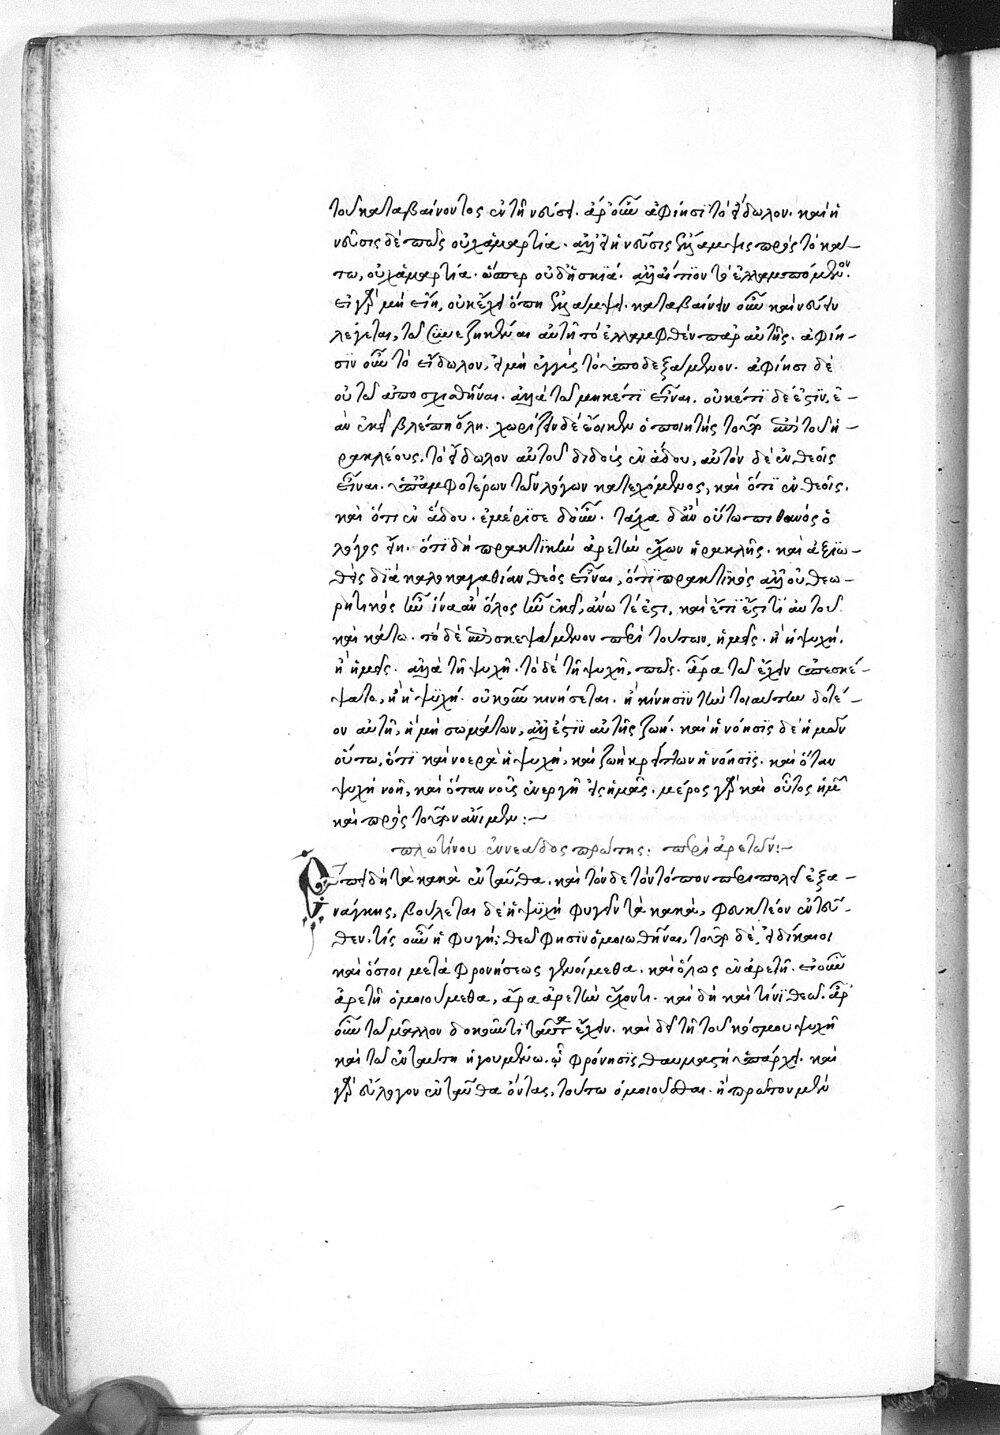 τοῦ καταβαίνοντος ἐν τῇ νεύσει. ἆρ' οὖν ἀφίησι τὸ εἴδωλον. καὶ ἡ
νεῦσις δὲ πῶς οὐχ ἁμαρτία. ἀλλ' εἰ ἡ νεῦσις ἔλλαμψις πρὸς τὸ κά–
τω, οὐχ ἁμαρτία. ὥσπερ οὐδ' ἡ σκιά. ἀλλ' αἴτιον τὸ ἐλλαμπόμενον.
εἰ γὰρ μὴ εἴη, οὐκ ἔχει ὅπη ἐλλάμψει. καταβαίνειν οὖν καὶ νεύειν
λέγεται, τῷ συνεζηκέναι αὐτῇ τὸ ἐλλαμφθὲν παρ' αὐτῆς. ἀφίη–
σιν οὖν τὸ εἴδωλον, εἰ μὴ ἐγγὺς τὸ ὑποδεξάμενον. ἀφίησι δὲ
οὐ τῷ ἀποσχισθῆναι. ἀλλὰ τῷ μηκέτι εἶναι. οὐκέτι δέ ἐστιν, ἐ–
ὰν ἐκεῖ βλέπῃ ὅλη. χωρίζειν δὲ ἔοικεν ὁ ποιητὴς τοῦτο ἐπὶ τοῦ ἡ–
ρακλέους. τὸ εἴδωλον αὐτοῦ διδοὺς ἐν ἅδου, αὐτὸν δὲ ἐν θεοῖς
εἶναι. ὑπ' ἀμφοτέρων τῶν λόγων κατεχόμενος, καὶ ὅτι ἐν θεοῖς.
καὶ ὅτι ἐν ἅδου. ἐμέρισε δ' οὖν. τάχα δ' ἂν οὕτω πιθανὸς ὁ
λόγος εἴη. ὅτι δὴ πρακτικὴν ἀρετὴν ἔχων ἡρακλῆς. καὶ ἀξιω–
θεὶς διὰ καλοκαγαθίαν θεὸς εἶναι, ὅτι πρακτικὸς ἀλλ' οὐ θεω–
ρητικὸς ἦν ἵνα ἂν ὅλος ἦν ἐκεῖ, ἄνω τέ ἐστι, καὶ ἔτι ἐστί τι αὐτοῦ
καὶ κάτω. τὸ δὲ ἐπισκεψάμενον περὶ τούτων, ἡμεῖς. ἢ ἡ ψυχή.
ἢ ἡμεῖς. ἀλλὰ τῇ ψυχῇ. τὸ δὲ τῇ ψυχῇ, πῶς. ἆρα τῷ ἔχειν ἐπεσκέ–
ψατο, ἢ ἡ ψυχή. οὐκοῦν κινήσεται. ἢ κίνησιν τὴν τοιαύτην δοτέ–
ον αὐτῇ, ἣ μὴ σωμάτων, ἀλλ' ἐστὶν αὐτῆς ζωή. καὶ ἡ νόησις δὲ ἡμῶν
οὕτω, ὅτι καὶ νοερὰ ἡ ψυχή, καὶ ζωὴ κρείττων ἡ νόησις. καὶ ὅταν
ψυχὴ νοῇ, καὶ ὅταν νοῦς ἐνεργῇ εἰς ἡμᾶς. μέρος γὰρ καὶ οὗτος ἡμῶν
καὶ πρὸς τοῦτον ἄνιμεν:–
πλωτίνου ἐννεάδος πρώτης: περὶ ἀρετῶν:–
Ἐπειδὴ τὰ κακὰ ἐνταῦθα. καὶ τόνδε τὸν τόπον περιπολεῖ ἐξ ἀ–
νάγκης, βούλεται δὲ ἡ ψυχὴ φυγεῖν τὰ κακά, φευκτέον ἐντεῦ–
θεν. τίς οὖν ἡ φυγή; θεῷ φησιν ὁμοιωθῆναι, τοῦτο δὲ, εἰ δίκαιοι
καὶ ὅσιοι μετὰ φρονήσεως γενοίμεθα. καὶ ὅλως ἐν ἀρετῇ. εἰ οὖν
ἀρετῇ ὁμοιούμεθα, ἆρα ἀρετὴν ἔχοντι. καὶ δὴ καὶ τίνι θεῷ. ἆρ'
οὖν τῷ μᾶλλον δοκοῦντι ταῦτα ἔχειν. καὶ δεῖ τῇ τοῦ κόσμου ψυχῇ
καὶ τῷ ἐν ταύτῃ ἡγουμένῳ. ᾧ φρόνησις θαυμαστὴ ὑπάρχει. καὶ
γὰρ εὔλογον ἐνταῦθα ὄντας, τούτῳ ὁμοιοῦσθαι. ἢ πρῶτον μὲν